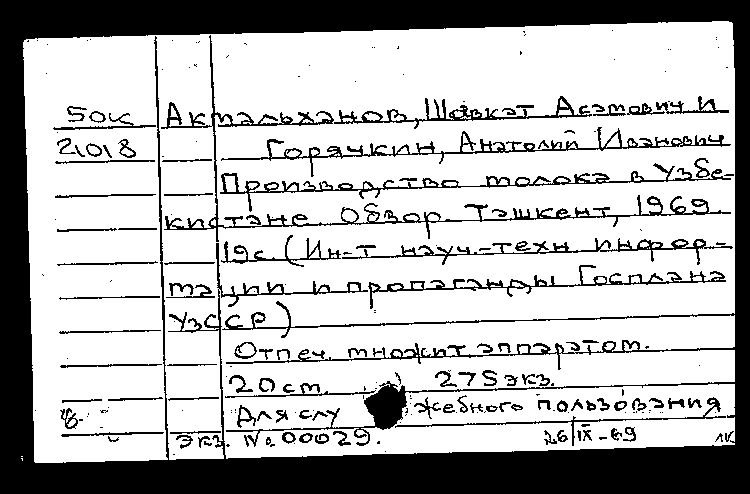 50к Акмальханов, Шавкат Асамович и
21018 Горячкин, Анатолий Иванович
Производство молока в Узбе-
кистане. Обзор. Ташкент, 1969.
19с. (Ин-т науч.-техн. инфор-
мации и пропаганды Госплана
УзССР)
Отпеч. множит. аппаратом.
20см. 275 экз.
Для служебного пользования
экз. № 00029. 26/IX-69